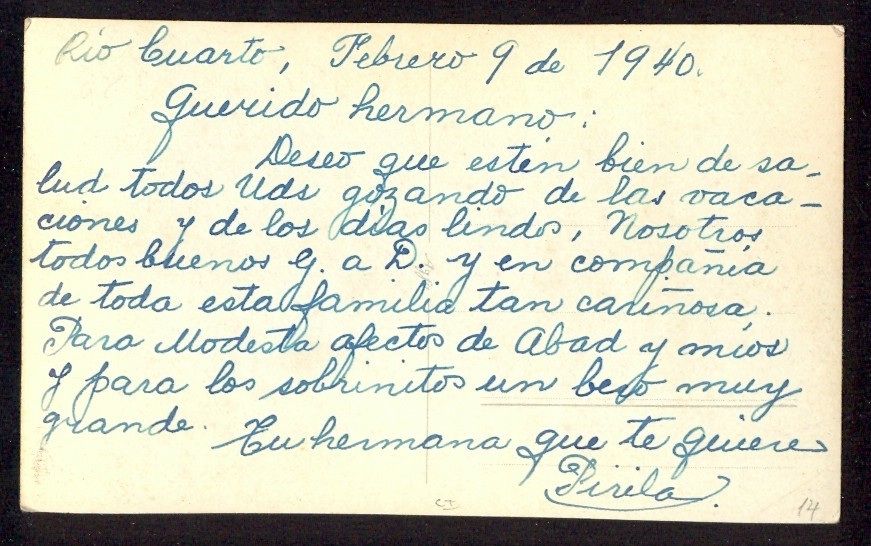 Río Cuarto, Febrero 9 de 1940.
Querido hermano:
Deseo que estén bien de sa-
lud todos Uds gozando de las vaca-
ciones y de los días lindos, Nosotros
todos buenos G. a D. y en compañía
de toda esta familia tan cariñosa.
Para Modesta afectos de Abad y míos
y para los sobrinitos un beso muy
grande. Tu hermana que te quiere
Pirila.
CI
14